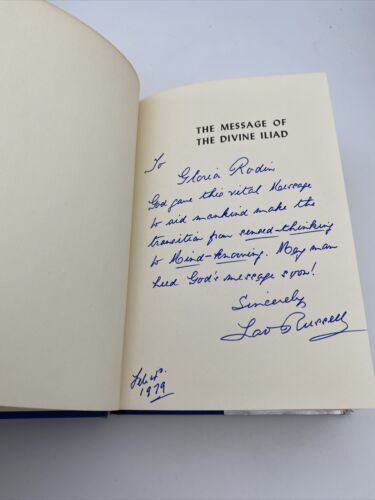 THE MESSAGE OF
THE DIVINE ILIAD
To
Gloria Rodin
God gave this vital Message
to aid mankind make the
transition from sensed-thinking
to Mind-knowing. May man
heed God's message soon!
Sincerely
Lao Russell
1979